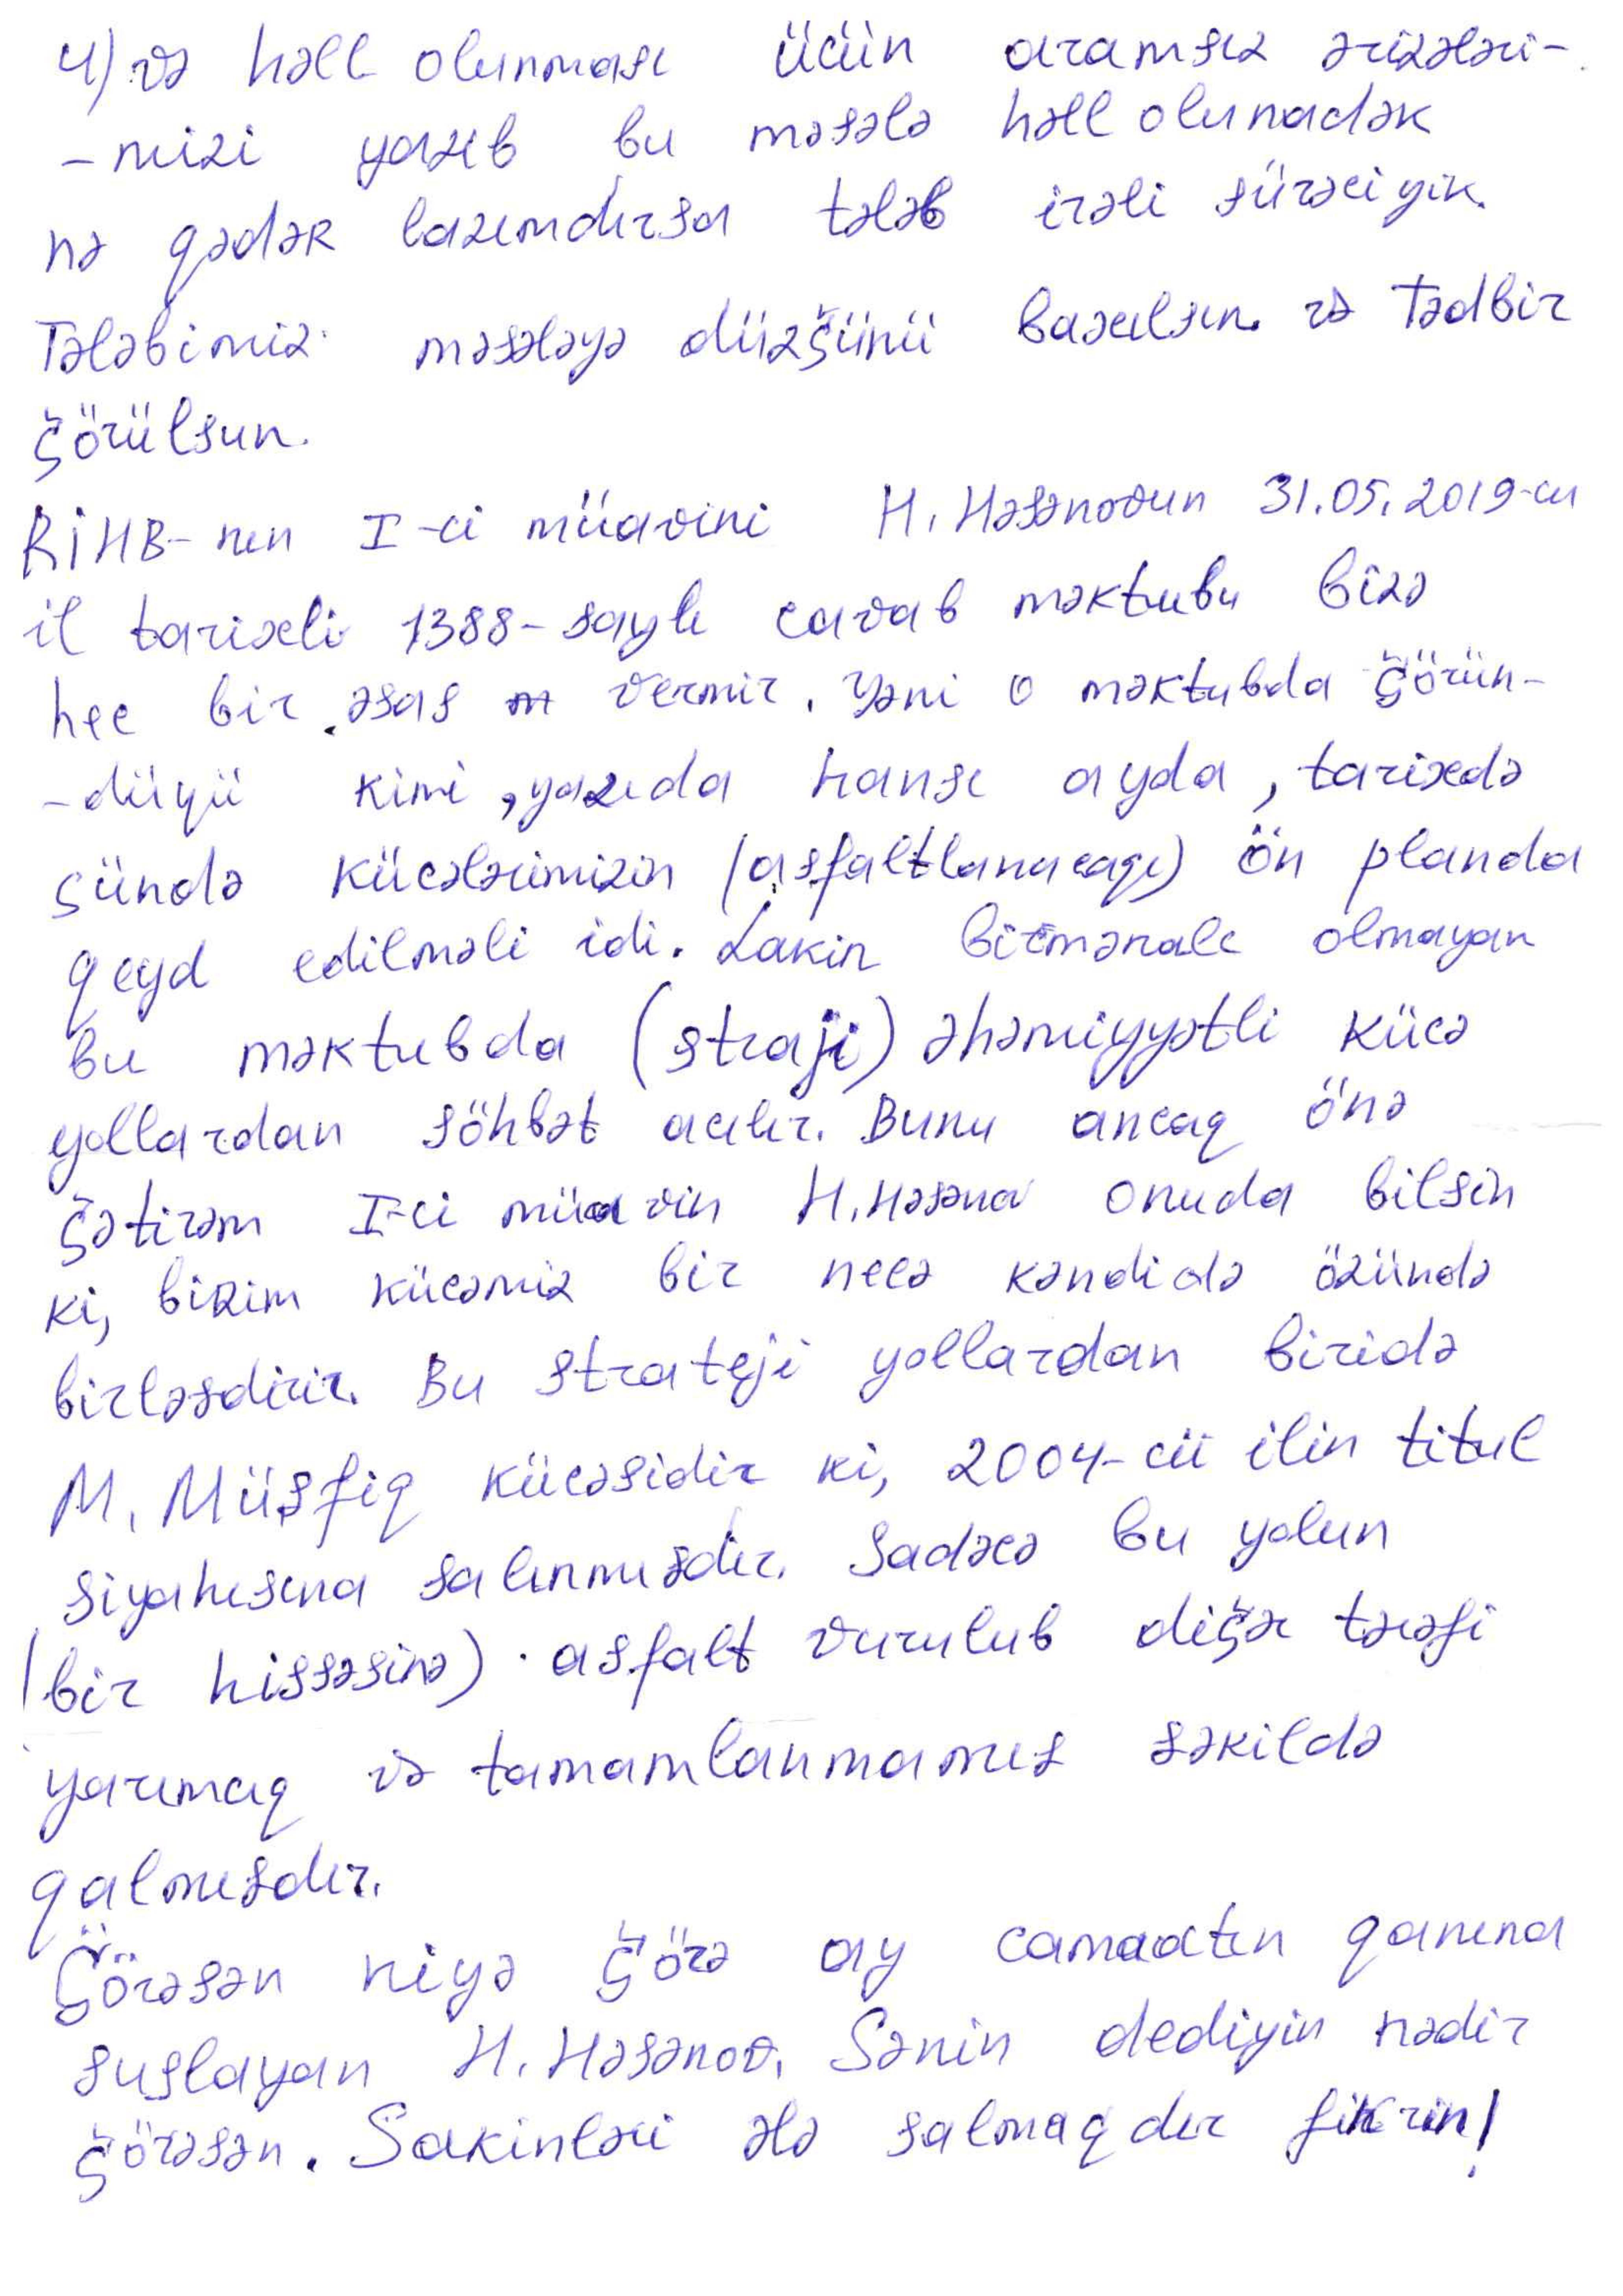 4) və həll olunması üçün aramsız ərizələri-
-mizi yazıb bu məsələ həll olunadək
nə qədər lazımdırsa tələb irəli sürəciyik.
Tələbimiz məsələyə düzgünü baxılsın və Tədbir
görülsun.
RİHB-nın I-ci müavini H. Həsənovun 31.05.2019-cu
il tarixli 1388-saylı cavab məktubu bizə
hec bir əsas vermir. Yəni o məktubda görün-
-düyü kimi, yazıda hansı ayda, tarixdə
gündə kücələrimizin (asfaltlanacağı) ön planda
qeyd edilməli idi. Lakin bitmənalı olmayan
bu məktubda (straji) əhəmiyyətli kücə
yollardan söhbət acılır. Bunu ancaq önə
gətirəm I-ci müavin H. Həsəna onuda bilsin
ki, bizim kücəmiz bir necə kəndidə özündə
birləsdirir. Bu strateji yollardan biridə
M. Müşfiq kücəsidir ki, 2004-cü ilin titul
siyahısına salınmışdır. Sadəcə bu yolun
(bir hissəsinə) asfalt vurulub digər tərəfi
yarımcıq və tamamlanmamıs səkildə
qalmısdır.
Görəsən niyə görə ay camaatın qanına
suslayan H. Həsənov. Sənin dediyin nədir
görəsən. Sakinləri ələ salmaqdır fikrin!